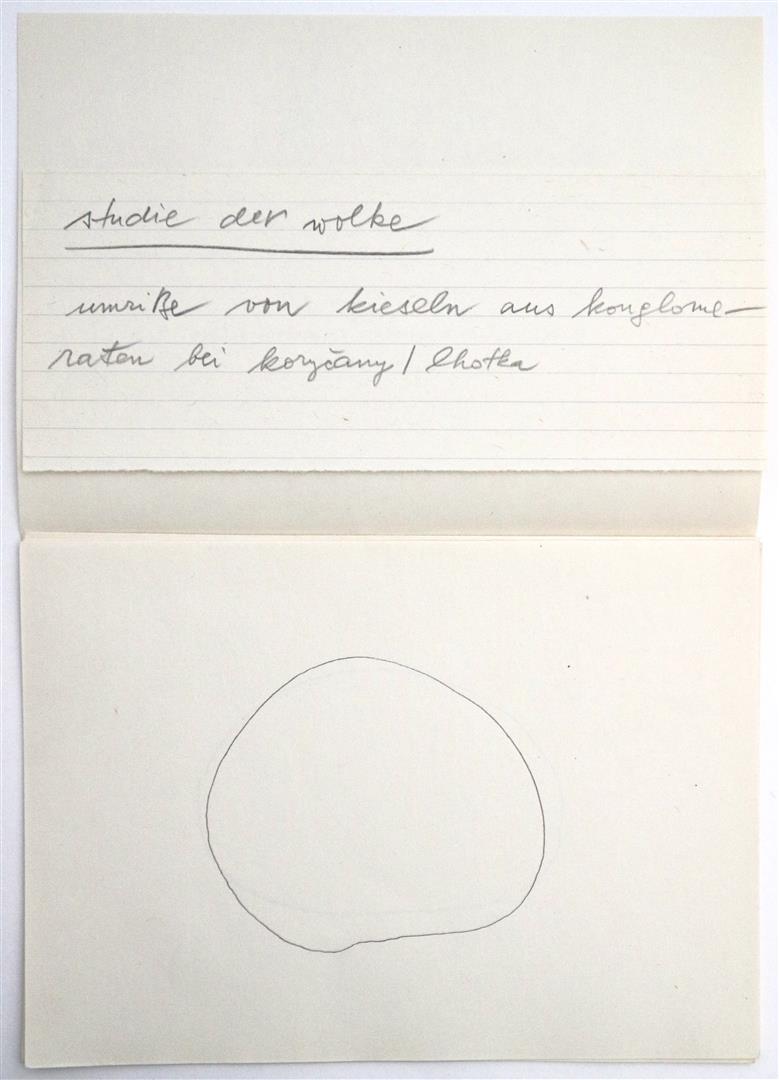 studie der wolke
umriße von kieseln aus konglome-
raten bei koryčany / lhotka